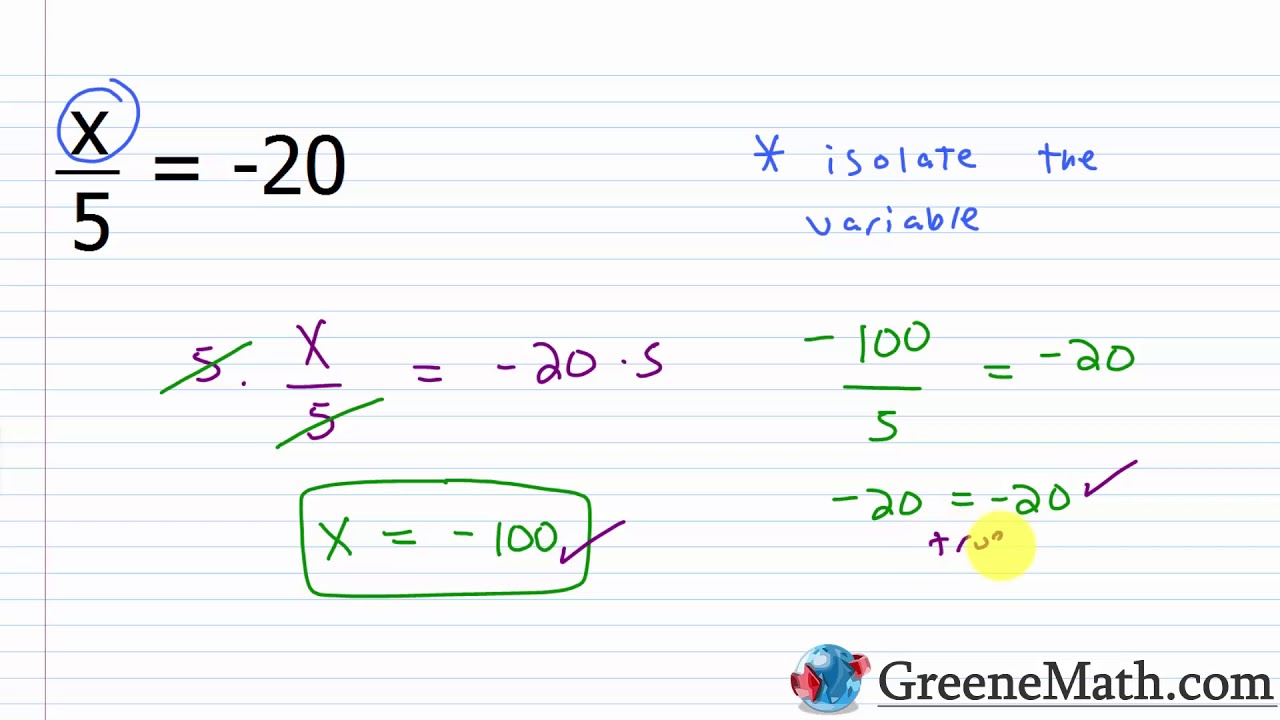 x/5 = -20
* isolate the
variable
5 · x/5 = -20 · 5
-100/5 = -20
x = -100 ✓
-20 = -20 ✓
GreeneMath.com